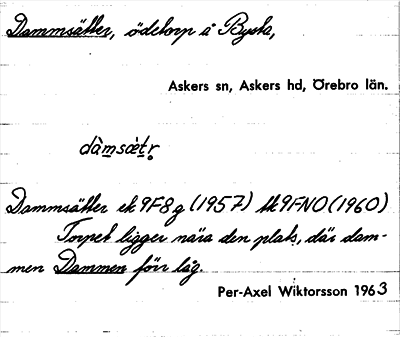 Dammsätter, ödetorp å Bysta,
Askers sn, Askers hd, Örebro län.
dàmsæ̀tr̥
Dammsätter ek 9F8g (1957) tk 9FNO (1960)
Torpet ligger nära den plats, där dam-
men Dammen förr låg.
Per-Axel Wiktorsson 1963